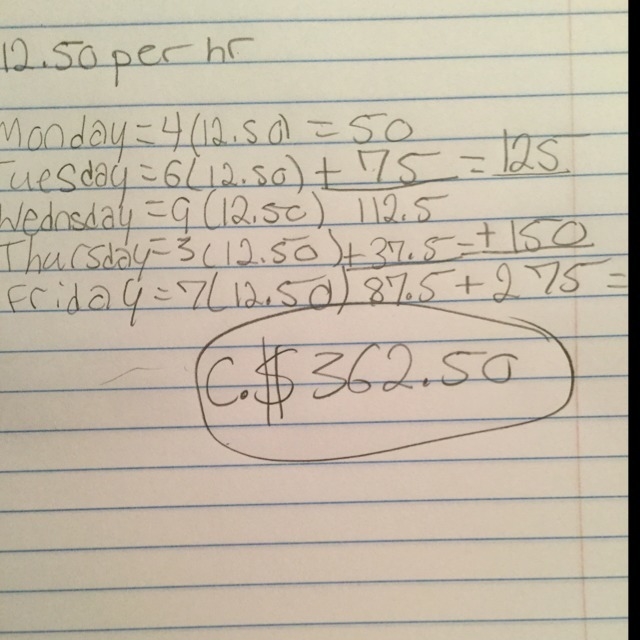 12.50 per hr
Monday = 4(12.50) = 50
Tuesday = 6(12.50) + 75 = 125
Wednsday = 9(12.50) 112.5
Thursday = 3(12.50) + 37.5 = + 150
Friday = 7(12.50) 87.5 + 275 =
C. $362.50